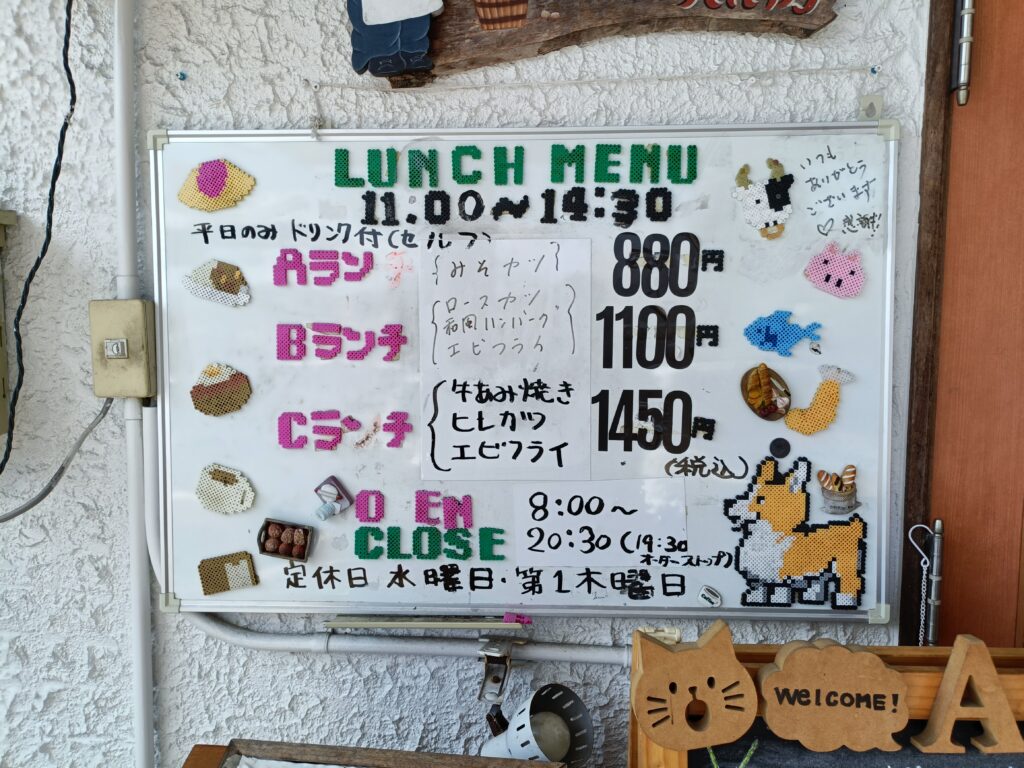 LUNCH MENU
11:00~14:30
平日のみ ドリンク付(セルフ)
Aラン
{みそカツ}
880円
Bランチ
ロースカツ
和風ハンバーグ
エビフライ
1100円
Cランチ
牛あみ焼き
ヒレカツ
エビフライ
1450円
(税込)
O EN
8:00~
CLOSE
20:30(19:30
オーダーストップ)
定休日 水曜日・第1木曜日
いつも
ありがとう
ございます
♡感謝!
WELCOME!
A